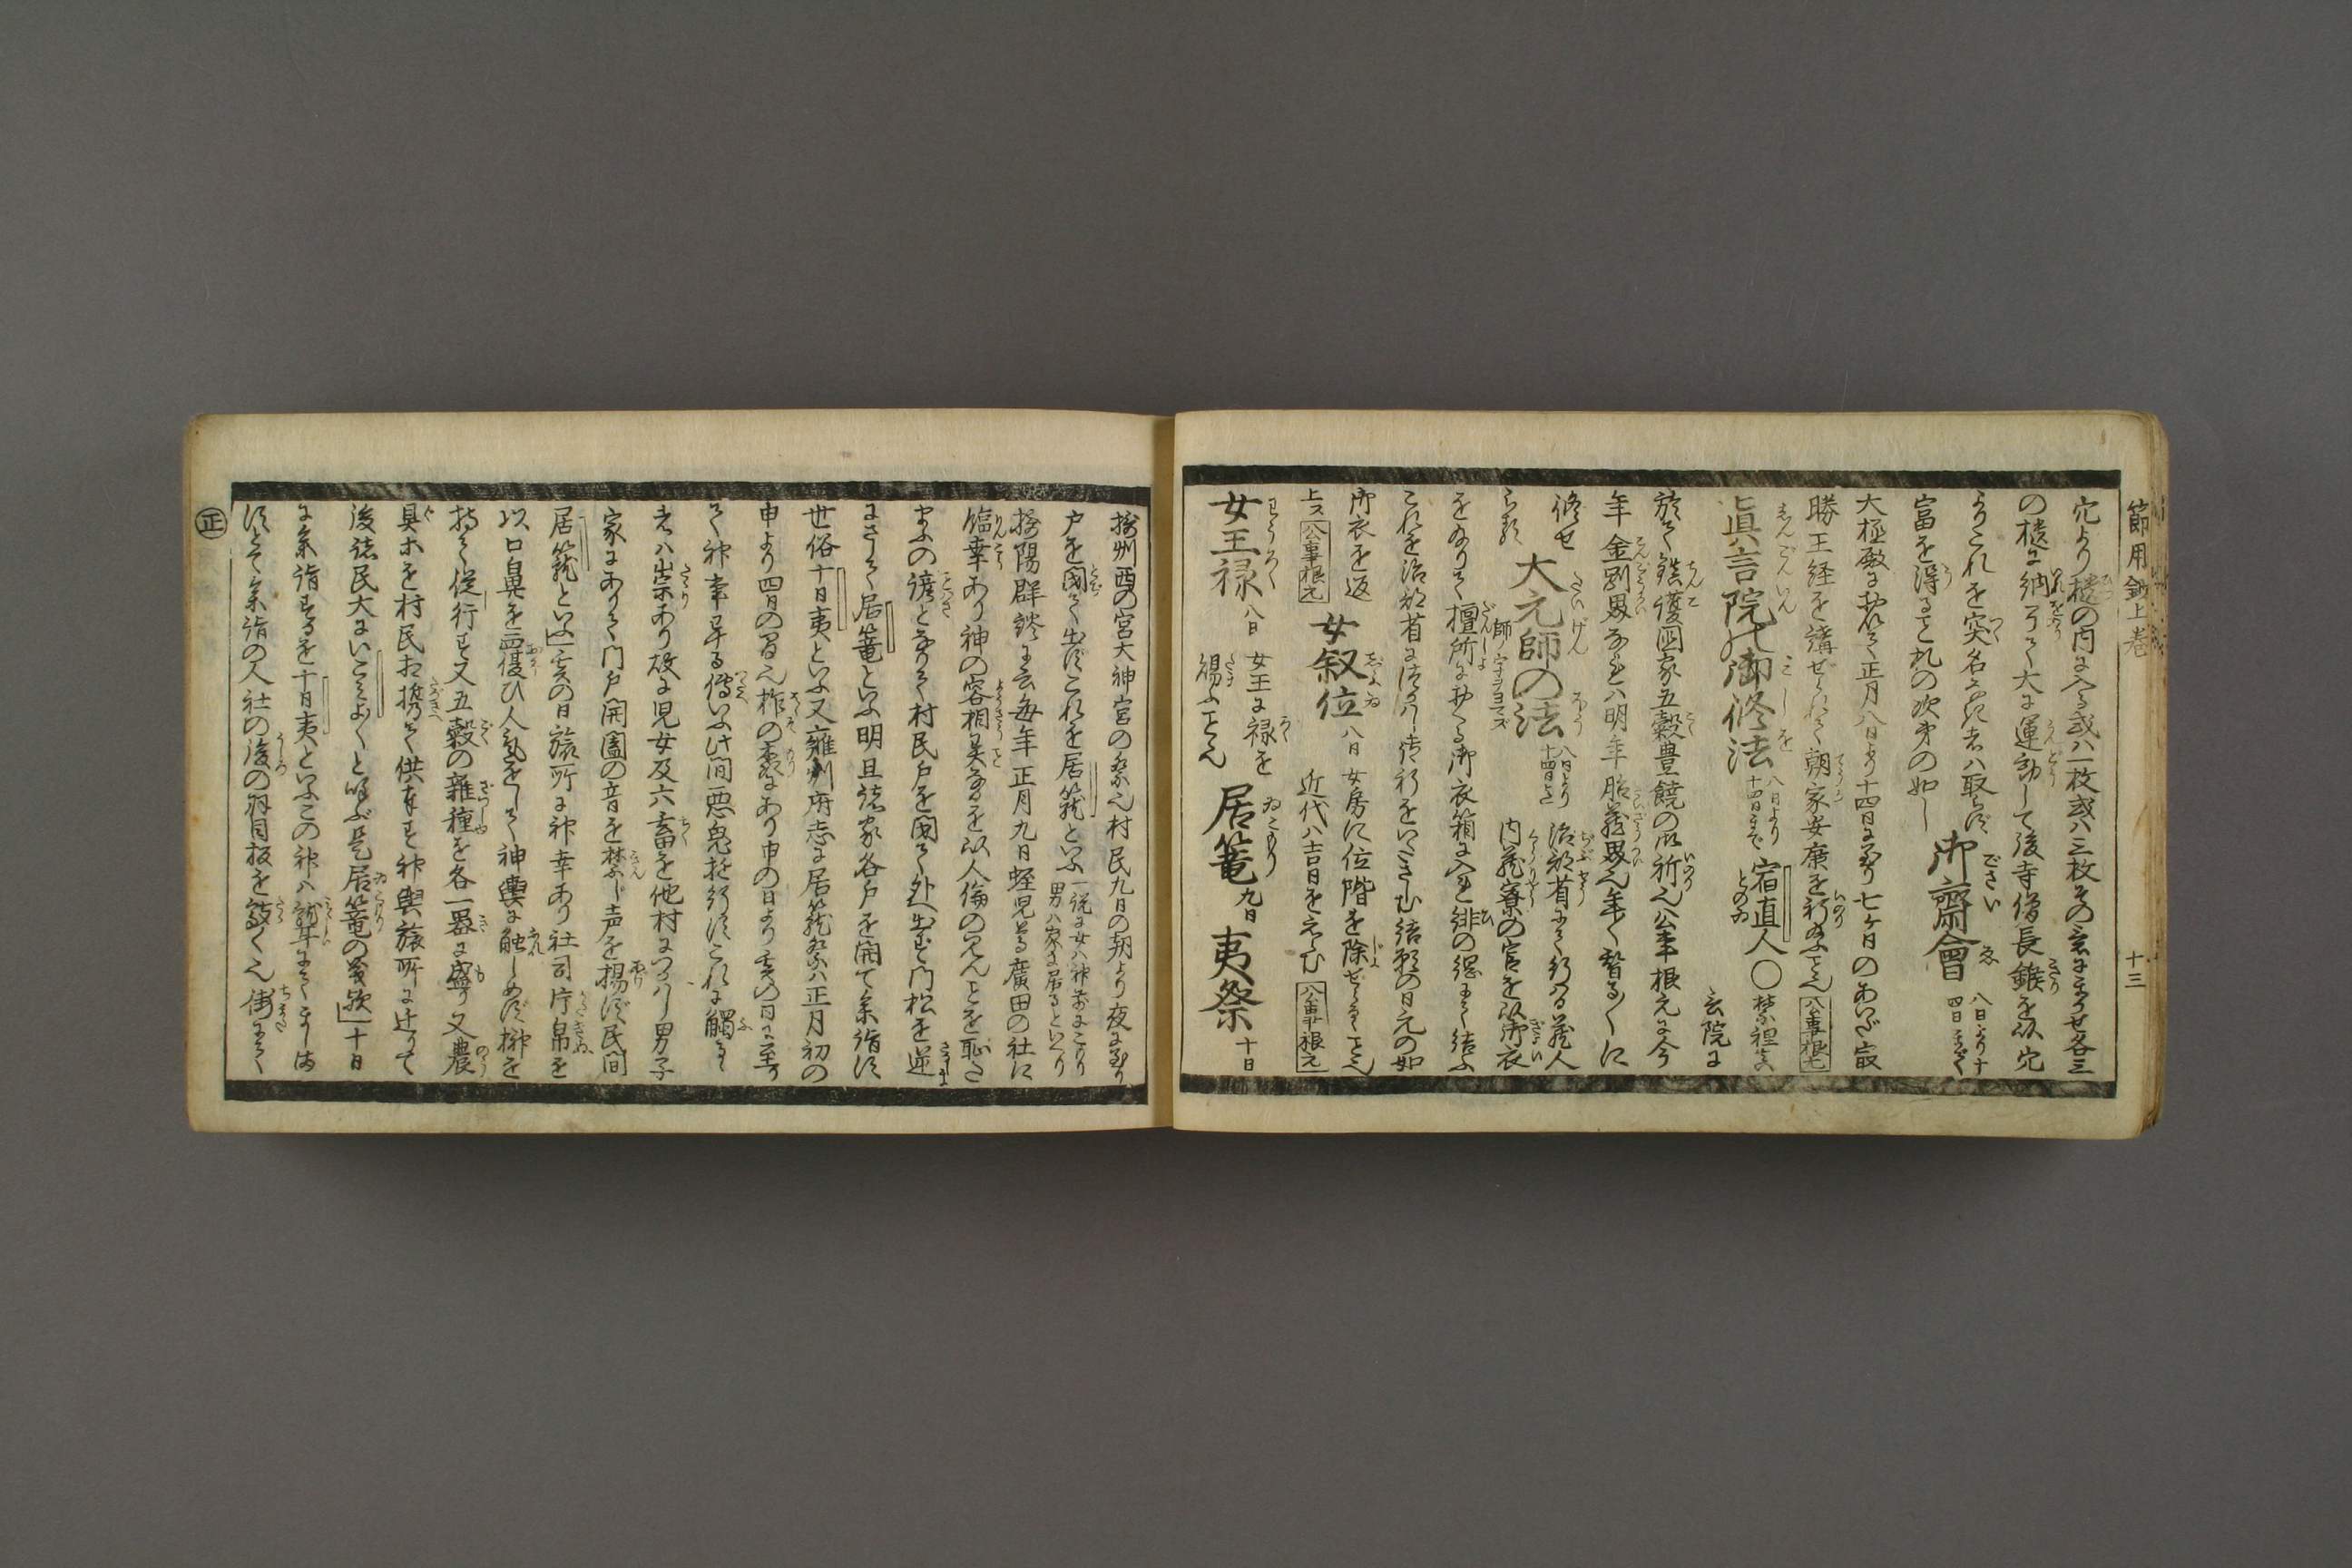 節用鈔上巻
十三
穴より櫃の内に入る或ハ一枚或ハ三枚その意にまかせ各三
の櫃に納めて大に運動して後寺僧長錐を以穴
よりこれを突名あれ者ハ取らず
富を得ること札の次第の如し
御齋會
八日より十
四日まで
大極殿におゐて正月八日より十四日に至り七ヶ日のあいだ最
勝王経を講ぜられて朝家安康を祈給ふこと也
公事根元
眞言院の御修法
八日より
十四日まで
宿直人
〇
禁裡
眞言院に
於て鎮護国家五穀豊饒の御祈也公事根元に今
年金剛界なれハ明年胎蔵界也年〱替る〱に
修せ
らる
大元師の法
師ノ字ヲヨマズ
八日より
治部省にて行はる蔵人
内蔵寮の官を以御衣
をたまりて壇所におくる御衣箱に入れ緋の綱にて結ふ
これを治部省につかハし御祈をいたさしむ結願の日元の如
御衣を返
上ス
公事根元
女叙位
八日
女房に位階を除せらるゝこと也
近代ハ吉日をえらむ
公事根元
女王禄
八日
女王に禄を
賜ふこと也
居篭
九日
夷祭
十日
摂州西の宮大神宮の祭也村民九日の朝より夜に至り
戸を閉て出ずこれを居篭といふ
一説に女ハ神前にこもり
男ハ家に居るといへり
摂陽群談に云毎年正月九日蛭児尊廣田の社に
臨幸あり神の容相異なるを以人倫の見んことを恥さ
まふの諺となりて村民戸を閉て外へ出ず門松を逆
にさして居篭といふ明旦諸家各戸を開て参詣す
世俗十日夷といふ又雍州府志に居篭祭ハ正月初の
申より四日の間也柞の森にあり申の日より亥の日に至り
て神事畢る傳いふ此間悪鬼遊行すこれに觸る
者ハ祟あり故に児女及六畜を他村につかハし男子
家にありて門戸開闔の音を禁じ声を揚ず民間
居篭といふ」亥の日旅所に神幸あり社司片帛を
以口鼻を覆ひ人氣をして神輿に触しめず榊を
持て従行す又五穀の雑種を各一器に盛り又農
具ホを村民相携て供奉す神輿旅所に止りて
後諸民大にいこまよくと呼ぶ是居篭の義欤」十日
に参詣するを十日夷といふこの神ハ聾耳にてまします
とて参詣の人社の後の羽目板を敲く也街にて
正